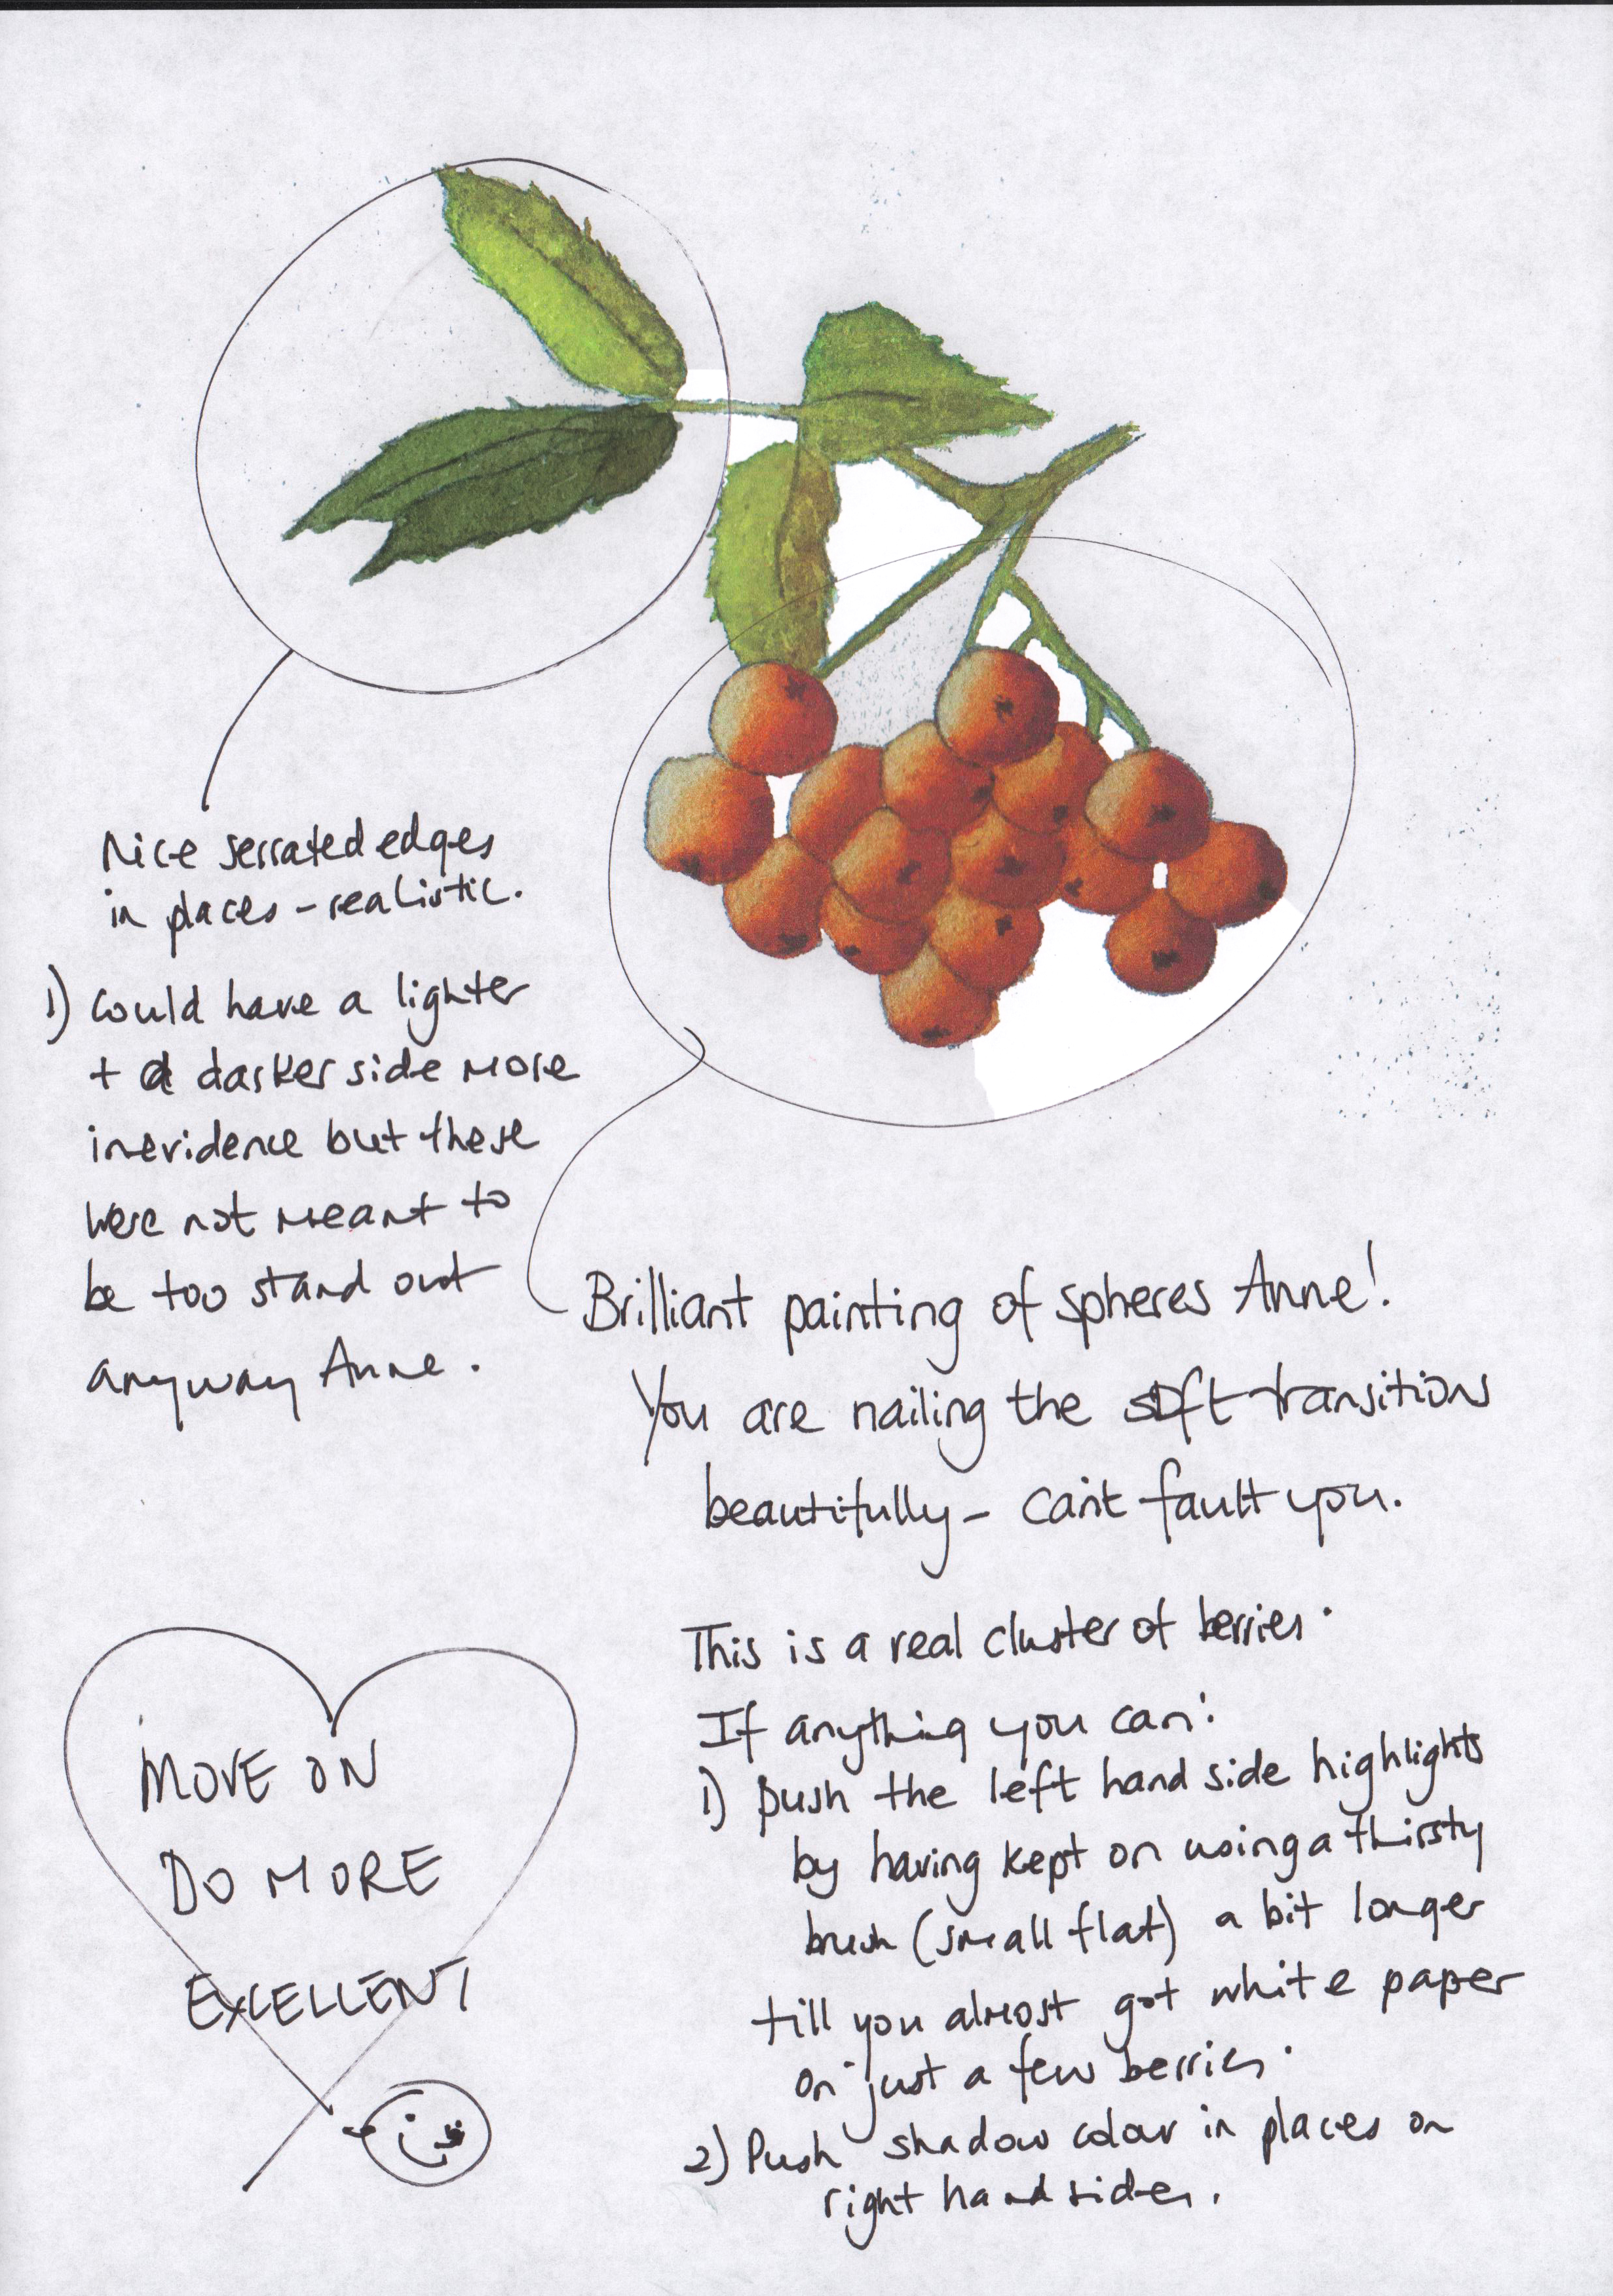 Nice serrated edges
in places - realistic.
1) Could have a lighter
+ a darker side more
in evidence but these
were not meant to
be too stand out
anyway Anne.
Brilliant painting of spheres Anne!
You are nailing the soft transitions
beautifully - can't fault you.
This is a real cluster of berries.
If anything you can:
1) push the left hand side highlights
by having kept on using a thirsty
brush (small flat) a bit longer
till you almost got white paper
on just a few berries.
2) Push shadow colour in places on
right hand sides.
MOVE ON
DO MORE
EXCELLENT